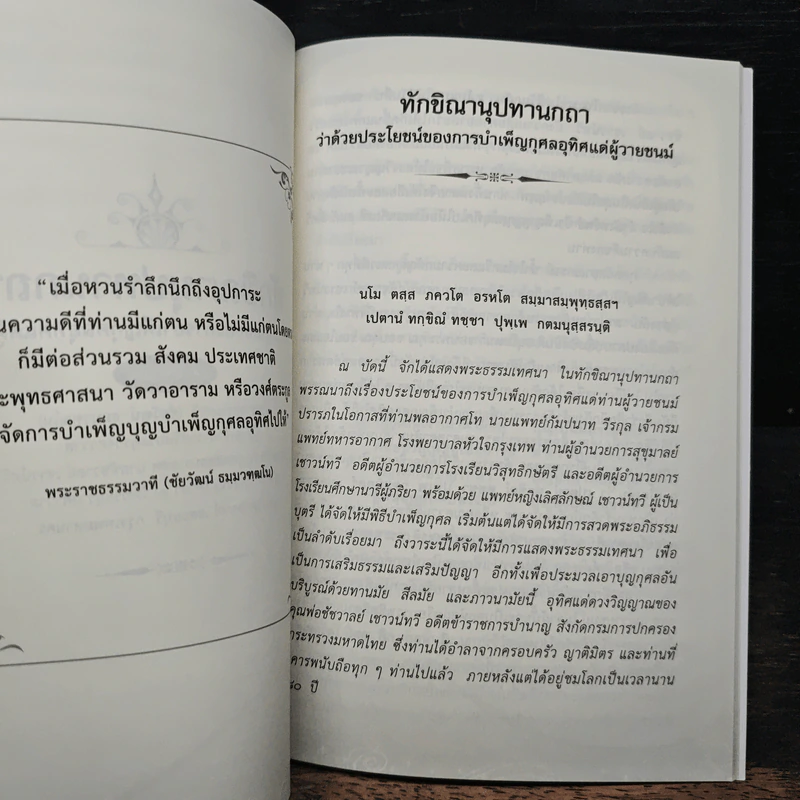 “เมื่อหวนรำลึกนึกถึงอุปการะ
ความดีที่ท่านมีแก่ตน หรือไม่มีแก่ตนโดย
ก็มีต่อส่วนรวม สังคม ประเทศชาติ
ะพุทธศาสนา วัดวาอาราม หรือวงศ์ตระกูล
จัดการบำเพ็ญบุญบำเพ็ญกุศลอุทิศไปให้”
พระราชธรรมวาที (ชัยวัฒน์ ธมฺมวฑฺฒโน)
ทักขิณานุปทานกถา
ว่าด้วยประโยชน์ของการบำเพ็ญกุศลอุทิศแด่ผู้วายชนม์
นโม ตสฺส ภควโต อรหโต สมฺมาสมฺพุทฺธสฺสฯ
เปตานํ ทกฺขิณํ ทชฺชา ปุพฺเพ กตมนุสฺสรนฺติ
ณ บัดนี้ จักได้แสดงพระธรรมเทศนา ในทักขิณานุปทานกถา
พรรณนาถึงเรื่องประโยชน์ของการบำเพ็ญกุศลอุทิศแด่ท่านผู้วายชนม์
ปรารภในโอกาสที่ท่านพลอากาศโท นายแพทย์กัมปนาท วีรกุล เจ้ากรม
แพทย์ทหารอากาศ โรงพยาบาลหัวใจกรุงเทพ ท่านผู้อำนวยการสุขุมาลย์
เชาวน์ทวี อดีตผู้อำนวยการโรงเรียนวิสุทธิกษัตรี และอดีตผู้อำนวยการ
โรงเรียนศึกษานารีผู้ภริยา พร้อมด้วย แพทย์หญิงเลิศลักษณ์ เชาวน์ทวี ผู้เป็น
บุตรี ได้จัดให้มีพิธีบำเพ็ญกุศล เริ่มต้นแต่ได้จัดให้มีการสวดพระอภิธรรม
เป็นลำดับเรื่อยมา ถึงวาระนี้ได้จัดให้มีการแสดงพระธรรมเทศนา เพื่อ
เป็นการเสริมธรรมและเสริมปัญญา อีกทั้งเพื่อประมวลเอาบุญกุศลอัน
บริบูรณ์ด้วยทานมัย สีลมัย และภาวนามัยนี้ อุทิศแด่ดวงวิญญาณของ
คุณพ่อชัชวาลย์ เชาวน์ทวี อดีตข้าราชการบำนาญ สังกัดกรมการปกครอง
กระทรวงมหาดไทย ซึ่งท่านได้อำลาจากครอบครัว ญาติมิตร และท่านที่
คารพนับถือทุก ๆ ท่านไปแล้ว ภายหลังแต่ได้อยู่ชมโลกเป็นเวลานาน
ปี